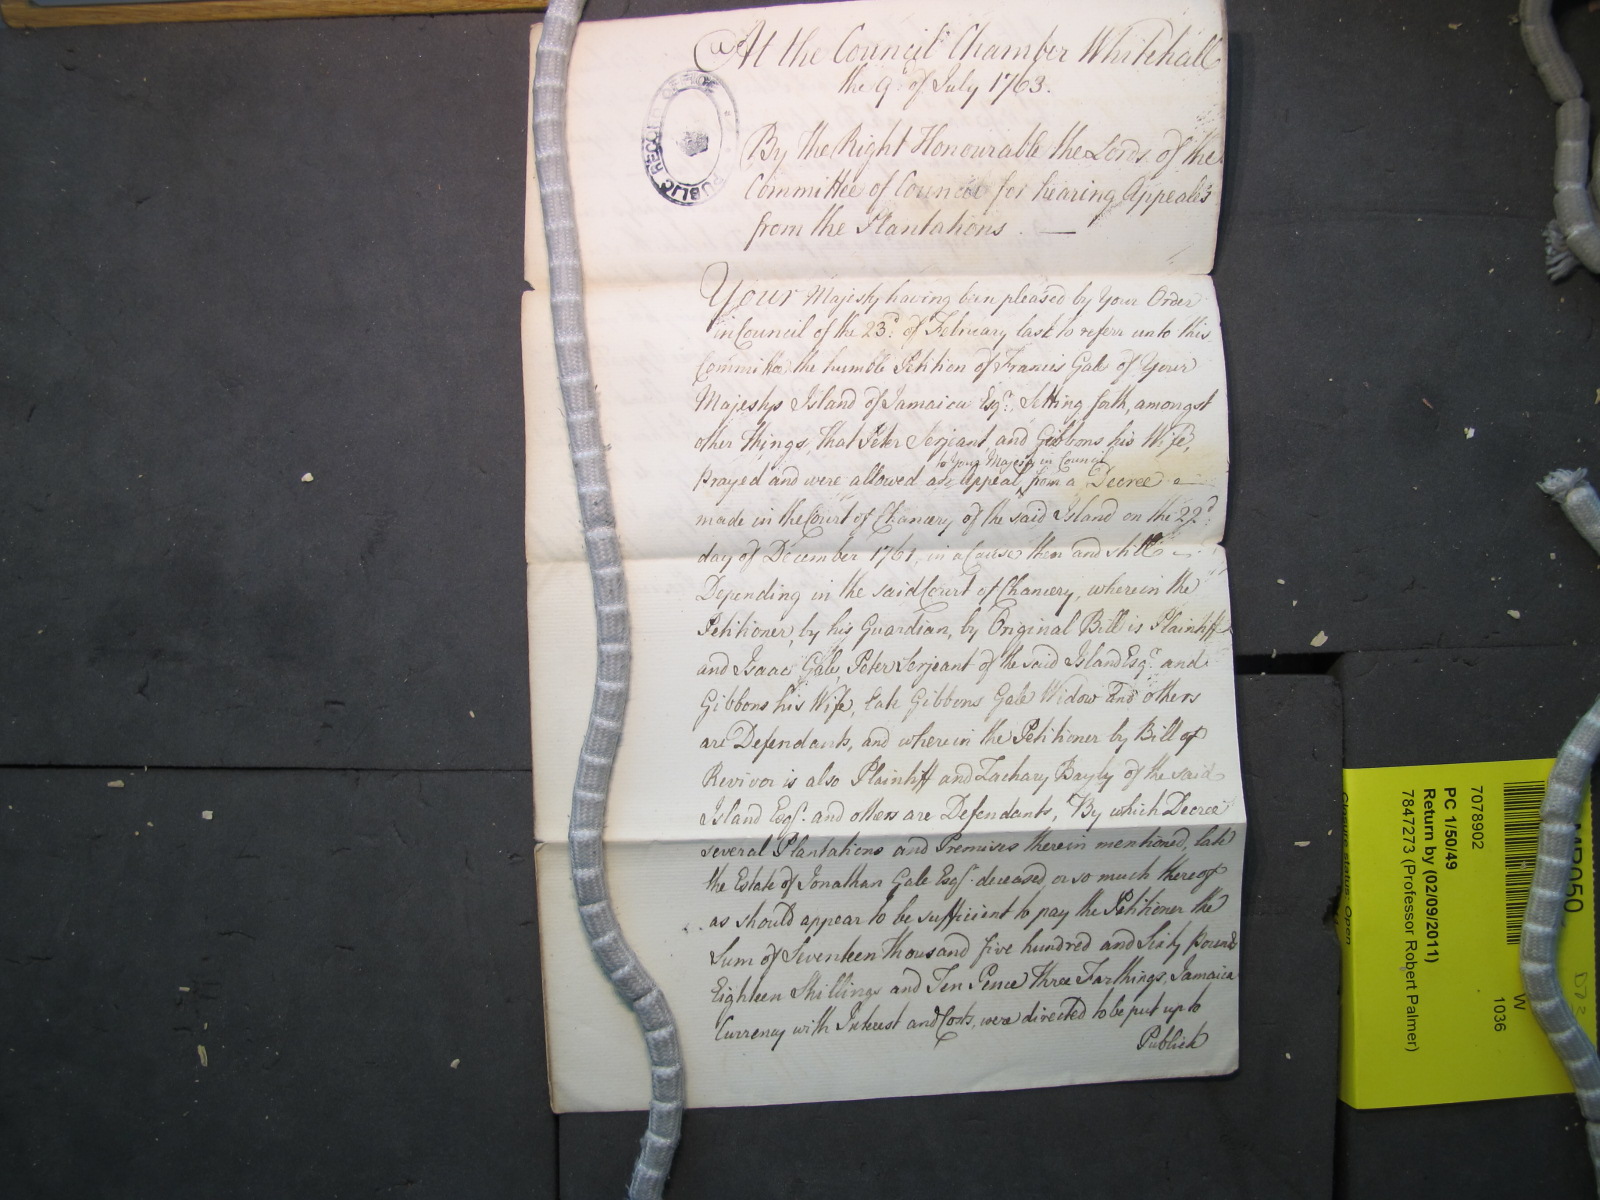 At the Council Chamber Whitehall
the 9th of July 1763.
PUBLIC RECORD OFFICE
By the Right Honourable the Lords of the
Committee of Council for hearing Appeals
from the Plantations. —
Your Majesty having been pleased by Your Order
in Council of the 23d. of February last to referr unto this
Committee the humble Petition of Francis Gale of Your
Majestys Island of Jamaica Esqr. Setting forth, amongst
other things, that Peter Serjeant and Gibbons his Wife,
to Your Majesty in Council
Prayed and were allowed an Appeal from a Decree
made in the Court of Chancery of the said Island on the 22d.
day of December 1761, in a Cause then and still
Depending in the said Court of Chancery, wherein the
Petitioner, by his Guardian, by Original Bill is Plaintiff
and Isaac Gale, Peter Serjeant of the said Island Esqr. and
Gibbons his Wife, late Gibbons Gale Widow and others
are Defendants, and wherein the Petitioner by Bill of
Revivor is also Plaintiff and Zachary Bayly of the said
Island Esqr. and others are Defendants, By which Decree
several Plantations and Premises therein mentioned, late
the Estate of Jonathan Gale Esqr. deceased, or so much thereof
as should appear to be sufficient to pay the Petitioner the
Sum of Seventeen thousand five hundred and Sixty Pounds
Eighteen Shillings and Ten Pence three Farthings, Jamaica
Currency with Interest and Costs, were directed to be put up to
Publick
W
1036
7078902
PC 1/50/49
Return by (02/09/2011)
7847273 (Professor Robert Palmer)
Closure status: Open